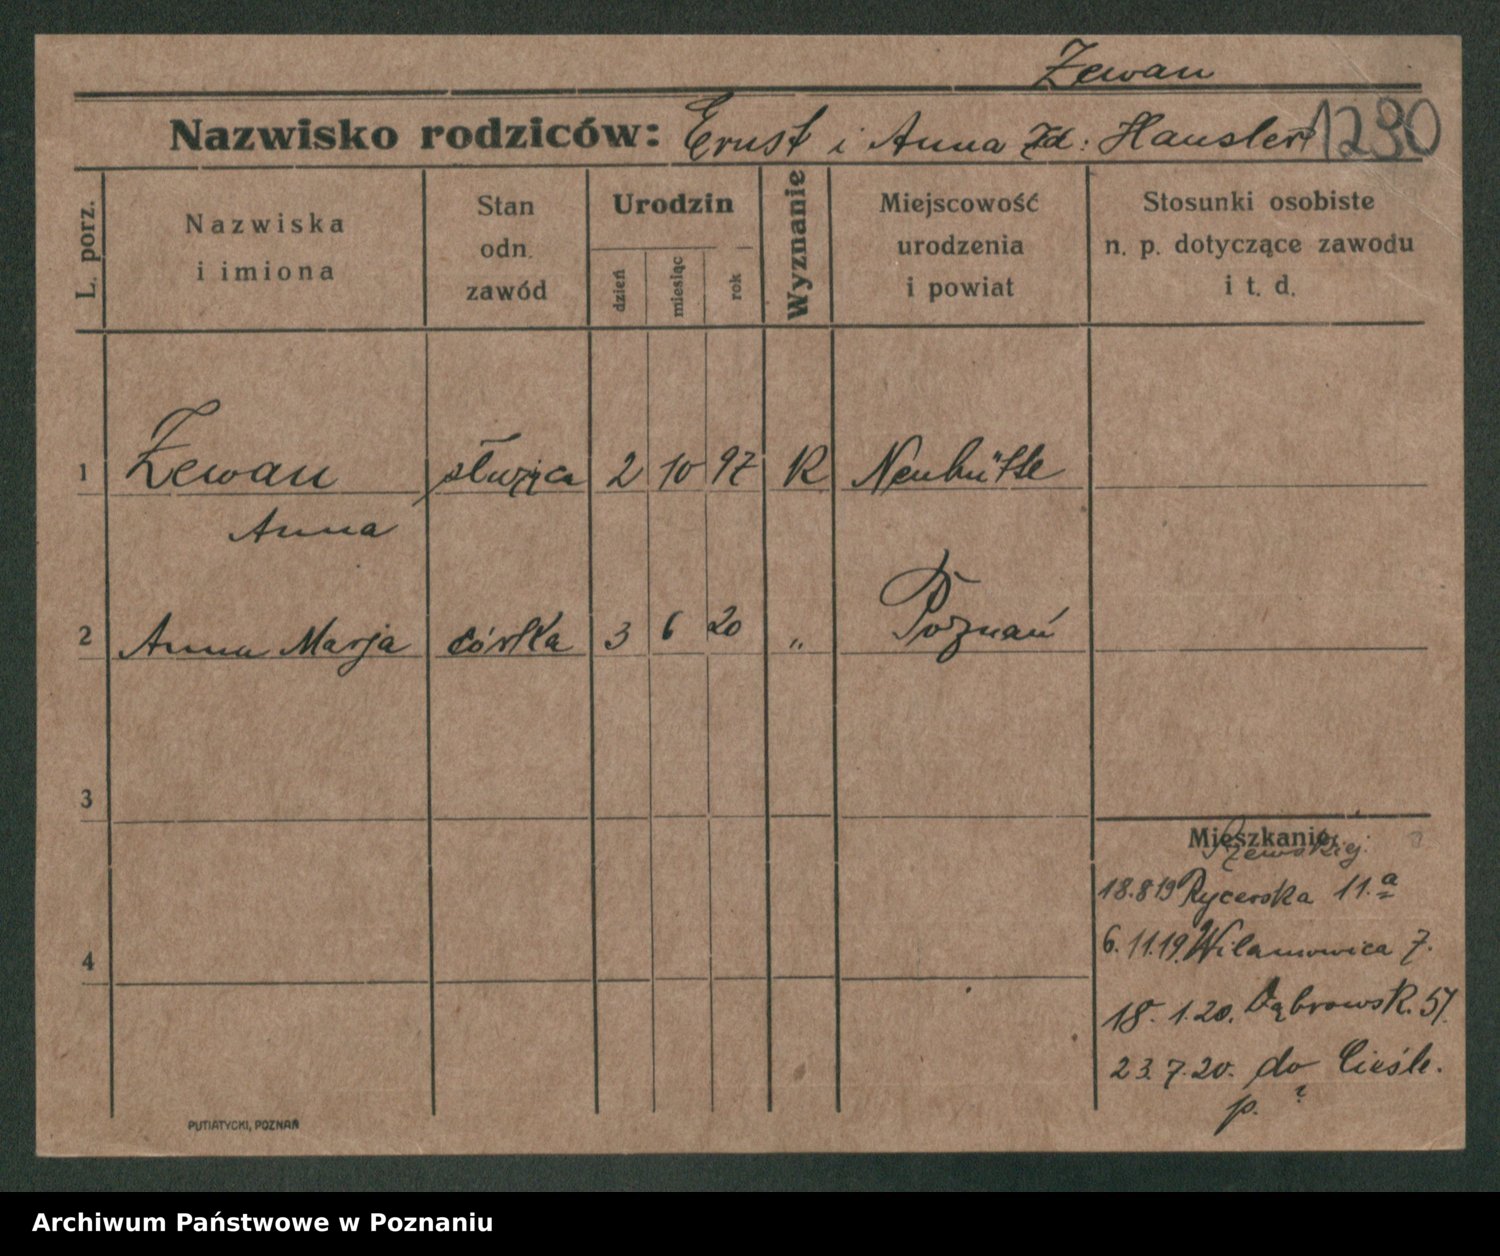 Zewan
Nazwisko rodziców: Ernst i Anna zd: Hausler 1230
L. porz.
Nazwiska
i imiona
Stan
odn.
zawód
Urodzin
dzień
miesiąc
rok
Wyznanie
Miejscowość
urodzenia
i powiat
Stosunki osobiste
n. p. dotyczące zawodu
i t. d.
1 Zewan służąca 2 10 97 K Neuhütte
Anna
2 Anna Marja córka 3 6 20 „ Poznań
3
Mieszkanie
18.8 19 Rycerska 11.a
4
6.11.19. Wilamowica 7.
18. 1.20. Dąbrowsk. 57.
23.7.20. do Cieśle.
p. ?
PUTIATYCKI, POZNAŃ
Archiwum Państwowe w Poznaniu